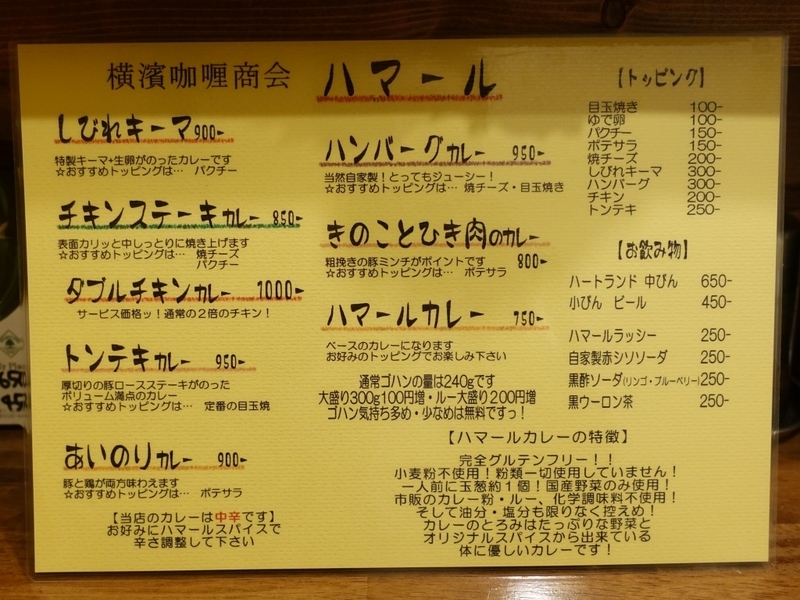 横濱咖喱商会
ハマール
しびれキーマ 900-
特製キーマ+生卵がのったカレーです
☆おすすめトッピングは… パクチー
チキンステーキカレー 850-
表面カリッと中しっとりに焼き上げます
☆おすすめトッピングは… 焼チーズ
パクチー
ダブルチキンカレー 1000-
サービス価格ッ！通常の２倍のチキン！
トンテキカレー 950-
厚切りの豚ロースステーキがのった
ボリューム満点のカレー
☆おすすめトッピングは… 定番の目玉焼
あいのりカレー 900-
豚と鶏が両方味わえます
☆おすすめトッピングは… ポテサラ
【当店のカレーは中辛です】
お好みにハマールスパイスで
辛さ調整して下さい
ハンバーグカレー 950-
当然自家製！とってもジューシー！
☆おすすめトッピングは… 焼チーズ・目玉焼き
きのことひき肉のカレー
800-
粗挽きの豚ミンチがポイントです
☆おすすめトッピングは… ポテサラ
ハマールカレー 750-
ベースのカレーになります
お好みのトッピングでお楽しみ下さい
通常ゴハンの量は240gです
大盛り300g100円増・ルー大盛り200円増
ゴハン気持ち多め・少なめは無料ですっ！
【トッピング】
目玉焼き 100-
ゆで卵 100-
パクチー 150-
ポテサラ 150-
焼チーズ 200-
しびれキーマ 300-
ハンバーグ 300-
チキン 200-
トンテキ 250-
【お飲み物】
ハートランド 中びん 650-
小びん ビール 450-
ハマールラッシー 250-
自家製赤シソソーダ 250-
黒酢ソーダ(リンゴ・ブルーベリー) 250-
黒ウーロン茶 250-
【ハマールカレーの特徴】
完全グルテンフリー！！
小麦粉不使用！粉類一切使用していません！
一人前に玉葱約１個！国産野菜のみ使用！
市販のカレー粉・ルー、化学調味料不使用！
そして油分・塩分も限りなく控えめ！
カレーのとろみはたっぷりな野菜と
オリジナルスパイスから出来ている
体に優しいカレーです！